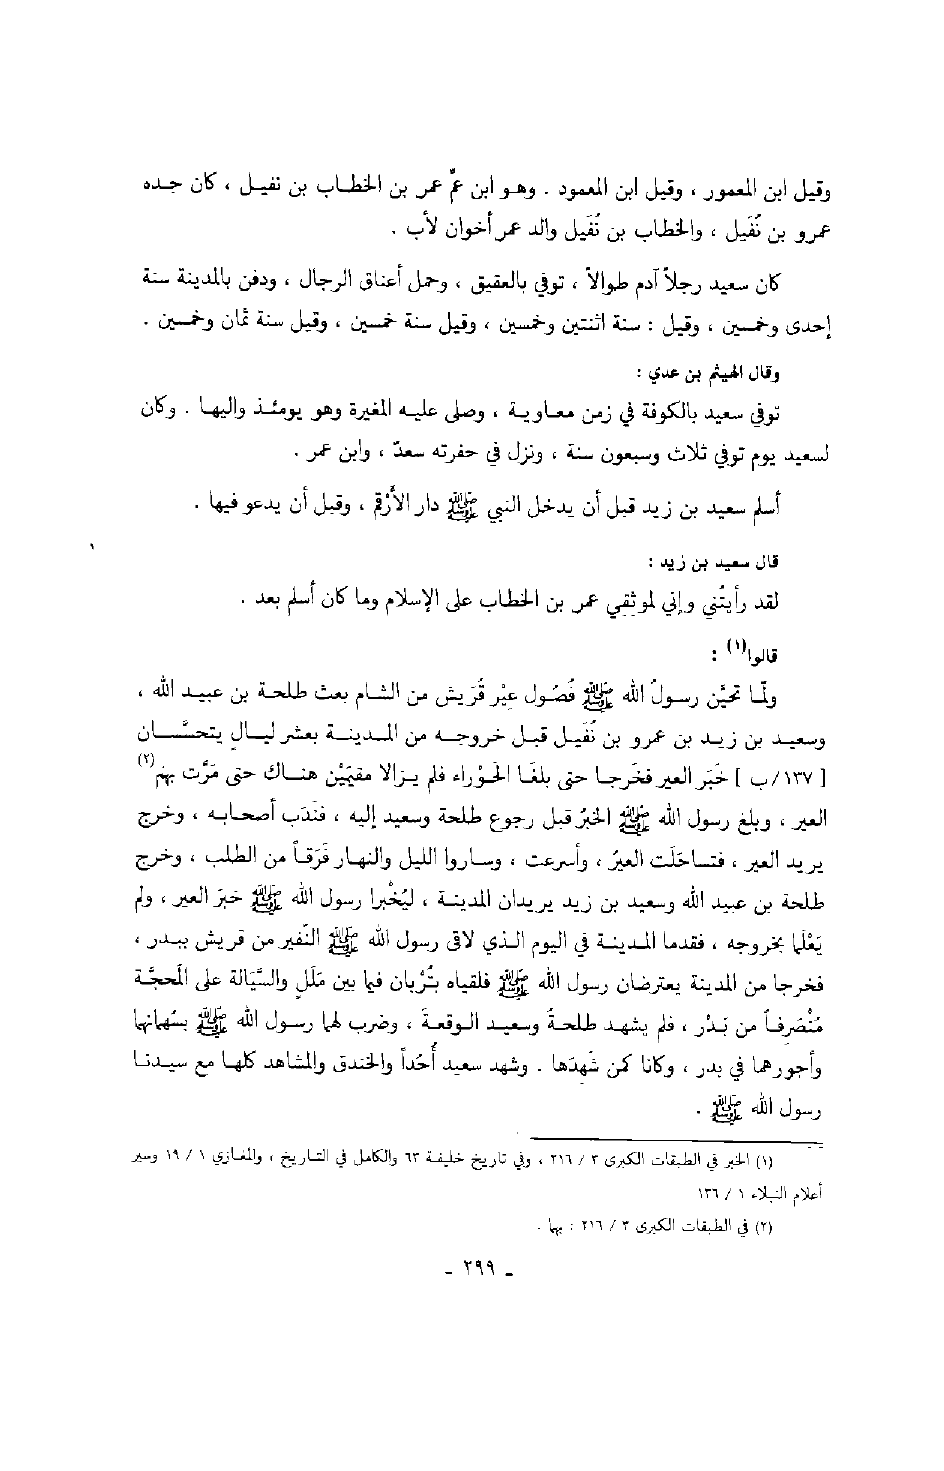 وقيل ابن المعمور ، وقيل ابن المعمود . وهو ابن عمِّ عمر بن الخطاب بن نفيل ، كان جده
عمرو بن نُفَيل ، والخطاب بن نُفَيل والد عمر أخوان لأب .
كان سعيد رجلاً آدم طوالاً ، توفي بالعقيق ، وحمل أعناق الرجال ، ودفن بالمدينة سنة
إحدى وخمسين ، وقيل : سنة اثنتين وخمسين ، وقيل سنة خمسين ، وقيل سنة ثمان وخمسين .
وقال الهيثم بن عدي :
توفي سعيد بالكوفة في زمن معاوية ، وصلى عليه المغيرة وهو يومئذ واليها . وكان
لسعيد يوم توفي ثلاث وسبعون سنة ، ونزل في حفرته سعدٌ ، وابن عمر .
أسلم سعيد بن زيد قبل أن يدخل النبي ﷺ دار الأرْقم ، وقبل أن يدعو فيها .
قال سعيد بن زيد :
لقد رأيتُني وإني لموثقي عمر بن الخطاب على الإسلام وما كان أسلم بعد .
قالوا(١) :
ولمّا تحيَّن رسولُ الله ﷺ فُصُول عِيْر قُرَيش من الشام بعث طلحة بن عبيد الله ،
وسعيد بن زيد بن عمرو بن نُفَيل قبل خروجه من المدينة بعشر ليالٍ يتحسَّسان
[ ١٣٧/ب ] خَبَر العير فخَرجا حتى بلغَا الحَوْراء فلم يزالا مقيمَيْن هناك حتى مَرَّت بهم(٢)
العير ، وبلغ رسول الله ﷺ الخبرُ قبل رجوع طلحة وسعيد إليه ، فنَدَب أصحابه ، وخرج
يريد العير ، فتساحَلَت العيرُ ، وأسرعت ، وساروا الليل والنهار فَرَقاً من الطلب ، وخرج
طلحة بن عبيد الله وسعيد بن زيد يريدان المدينة ، ليُخْبرا رسول الله ﷺ خبرَ العير ، ولم
يَعْلما بخروجه ، فقدما المدينة في اليوم الذي لاقى رسول الله ﷺ النّفير من قريش ببدر ،
فخرجا من المدينة يعترضان رسول الله ﷺ فلقياه بتُرْبان فيما بين مَلَلٍ والسَّيّالة على المحجَّة
مُنْصَرفاً من بَدْر ، فلم يشهد طلحةُ وسعيد الوقعةَ ، وضرب لهما رسول الله ﷺ بسُهمانهما
وأجورهما في بدر ، وكانا كمن شَهدَها . وشهد سعيد أُحُداً والخندق والمشاهد كلها مع سيدنا
رسول الله ﷺ .
(١) الخبر في الطبقات الكبرى ٣ / ٢١٦ ، وفي تاريخ خليفة ٦٣ والكامل في التاريخ ، والمغازي ١ / ١٩ وسير
أعلام النبلاء ١ / ١٣٦
(٢) في الطبقات الكبرى ٣ / ٢١٦ : بهما .
- ٢٩٩ -